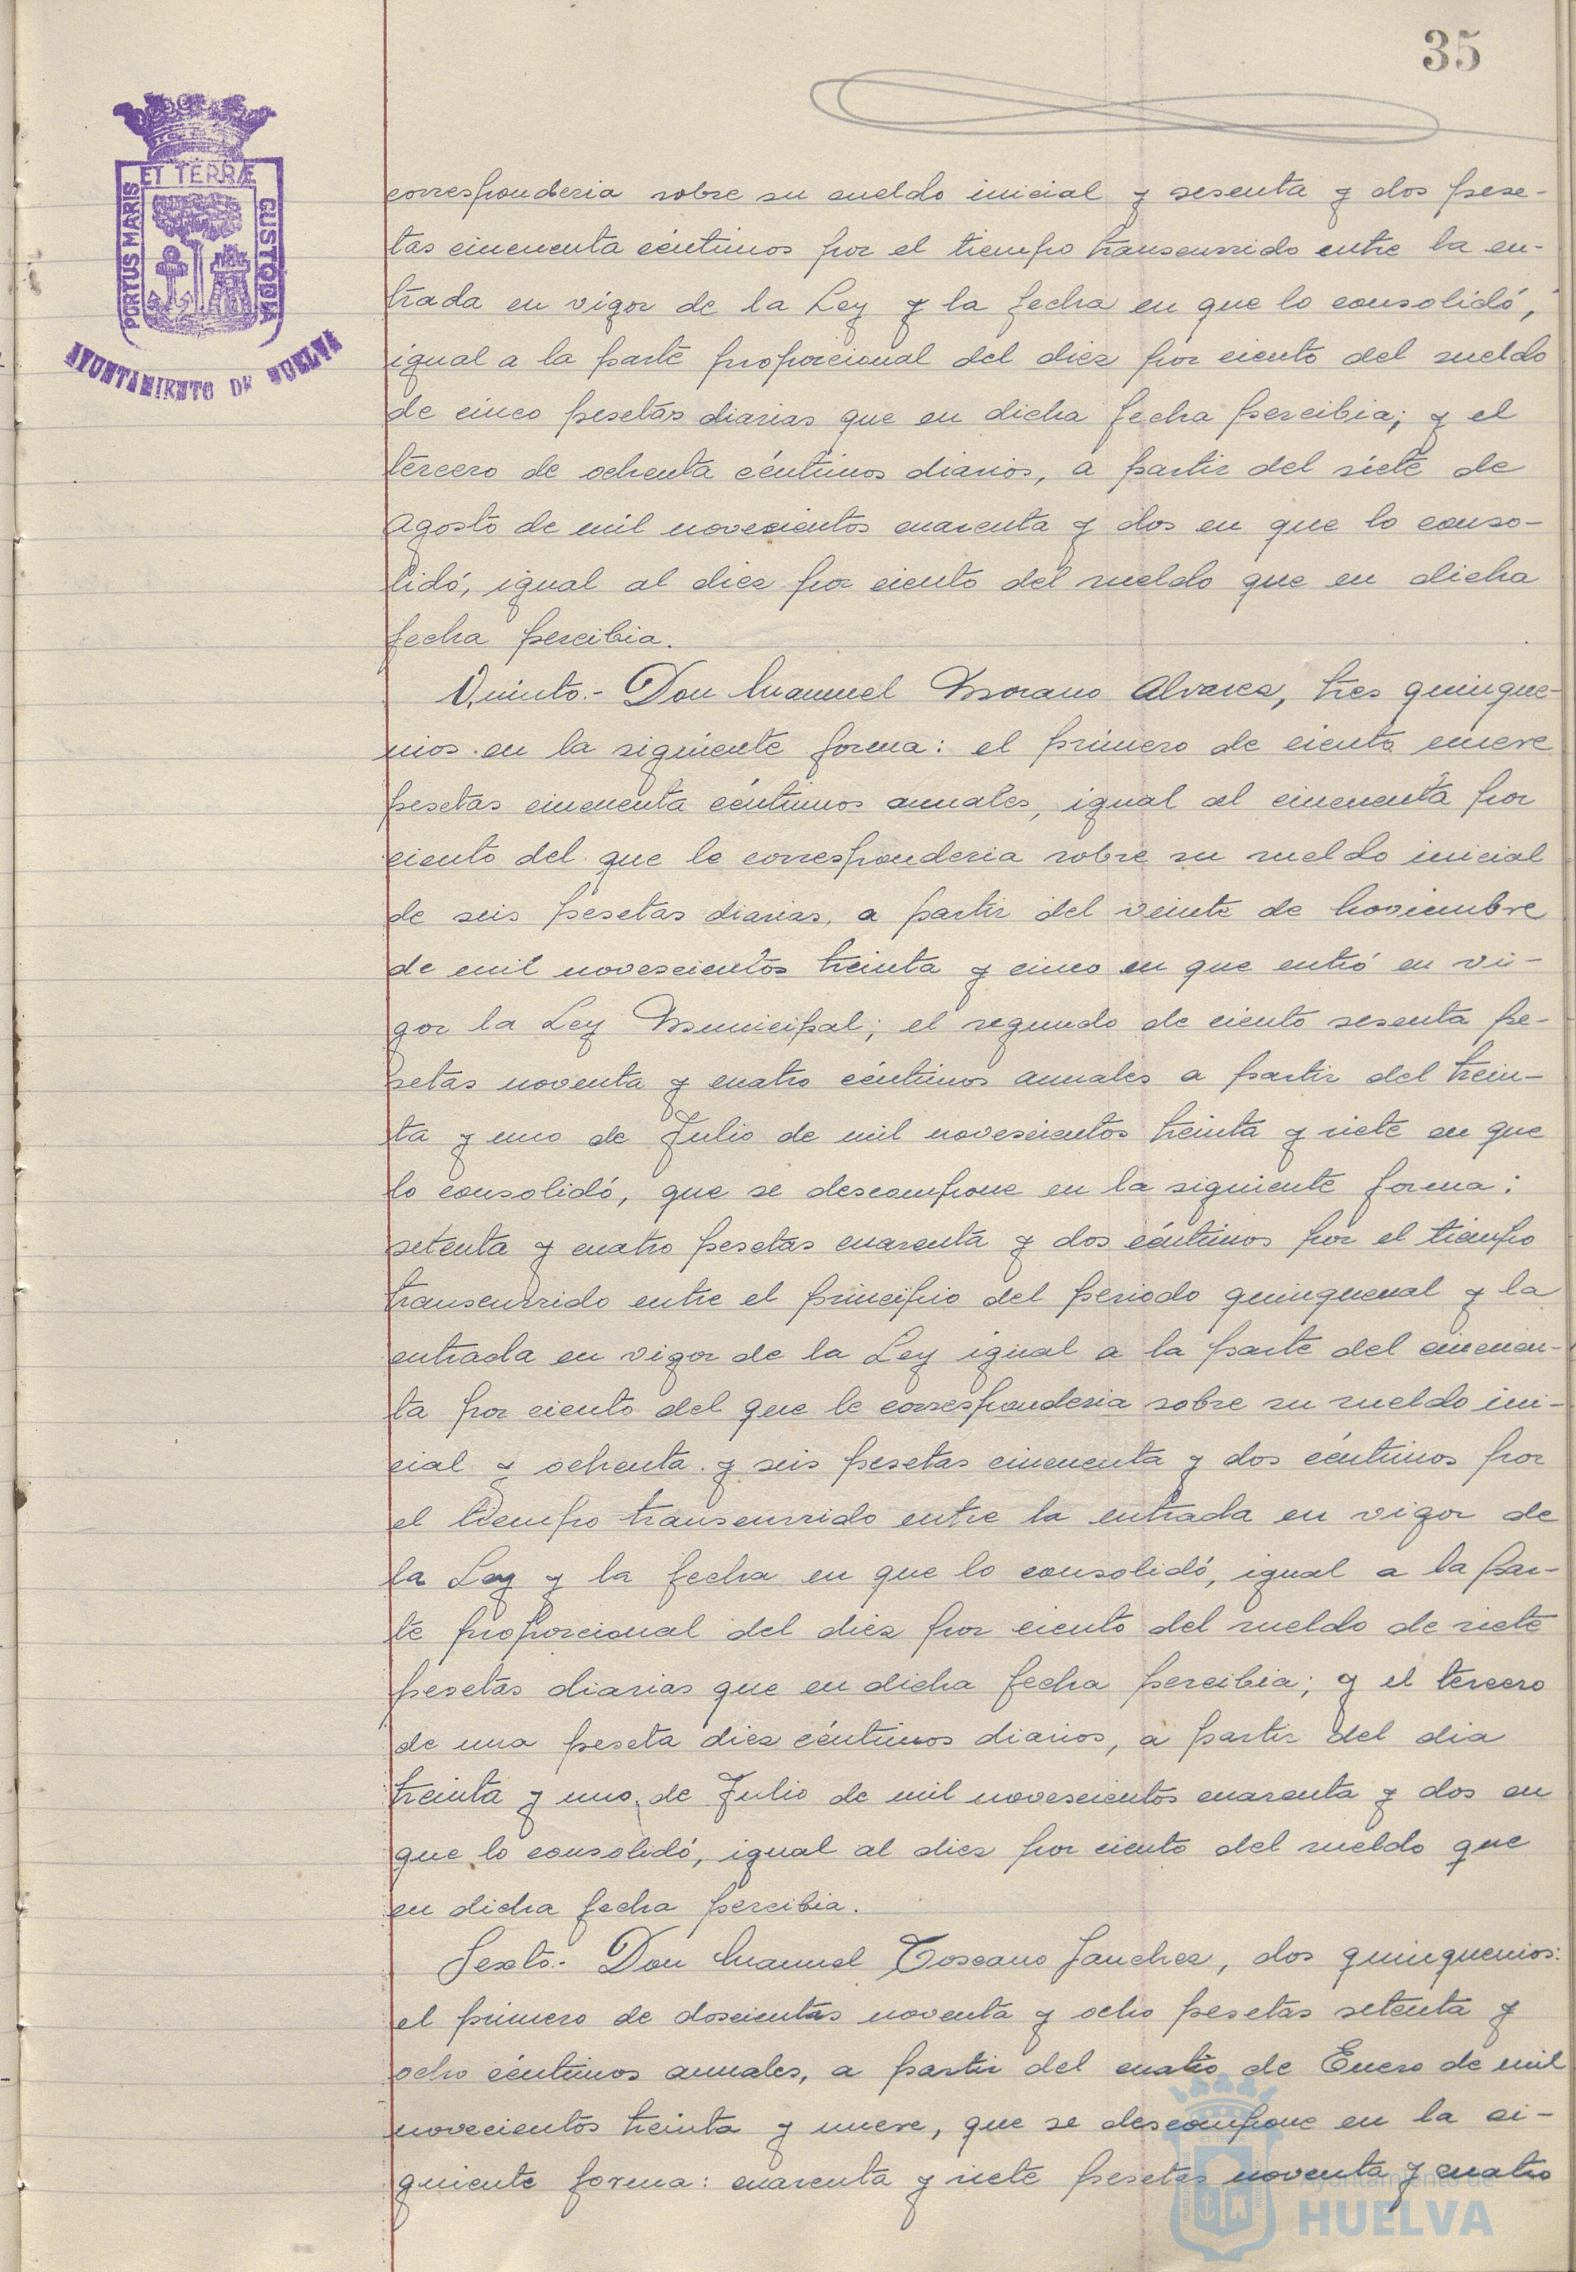 35
ET TERRÆ
PORTUS MARIS
CUSTODIA
AYUNTAMIENTO DE HUELVA
corresponderia sobre su sueldo inicial y sesenta y dos pese-
tas cincuenta céntimos por el tiempo transcurrido entre la en-
trada en vigor de la Ley y la fecha en que lo consolidó,
igual a la parte proporcional del diez por ciento del sueldo
de cinco pesetas diarias que en dicha fecha percibia; y el
tercero de ochenta céntimos diarios, a partir del siete de
Agosto de mil novecientos cuarenta y dos en que lo conso-
lidó, igual al diez por ciento del sueldo que en dicha
fecha percibia.
Quinto.- Don Manuel Morano Alvarez, tres quinque-
nios en la siguiente forma: el primero de ciento nueve
pesetas cincuenta céntimos anuales, igual al cincuenta por
ciento del que le corresponderia sobre su sueldo inicial
de seis pesetas diarias, a partir del veinte de Noviembre
de mil novescientos treinta y cinco en que entró en vi-
gor la Ley Municipal; el segundo de ciento sesenta pe-
setas noventa y cuatro céntimos anuales a partir del trein-
ta y uno de Julio de mil novescientos treinta y siete en que
lo consolidó, que se descompone en la siguiente forma:
setenta y cuatro pesetas cuarenta y dos céntimos por el tiempo
transcurrido entre el principio del periodo quinquenal y la
entrada en vigor de la Ley igual a la parte del cincuen-
ta por ciento del que le corresponderia sobre su sueldo ini-
cial y ochenta y seis pesetas cincuenta y dos céntimos por
el tiempo transcurrido entre la entrada en vigor de
la Ley y la fecha en que lo consolidó, igual a la par-
te proporcional del diez por ciento del sueldo de siete
pesetas diarias que en dicha fecha percibia; y el tercero
de una peseta diez céntimos diarios, a partir del dia
treinta y uno de Julio de mil novescientos cuarenta y dos en
que lo consolidó, igual al diez por ciento del sueldo que
en dicha fecha percibia.
Sexto.- Don Manuel Toscano Sanchez, dos quinquenios:
el primero de doscientas noventa y ocho pesetas setenta y
ocho céntimos anuales, a partir del cuatro de Enero de mil
novecientos treinta y nueve, que se descompone en la si-
guiente forma: cuarenta y siete pesetas noventa y cuatro
Ayuntamiento de
HUELVA